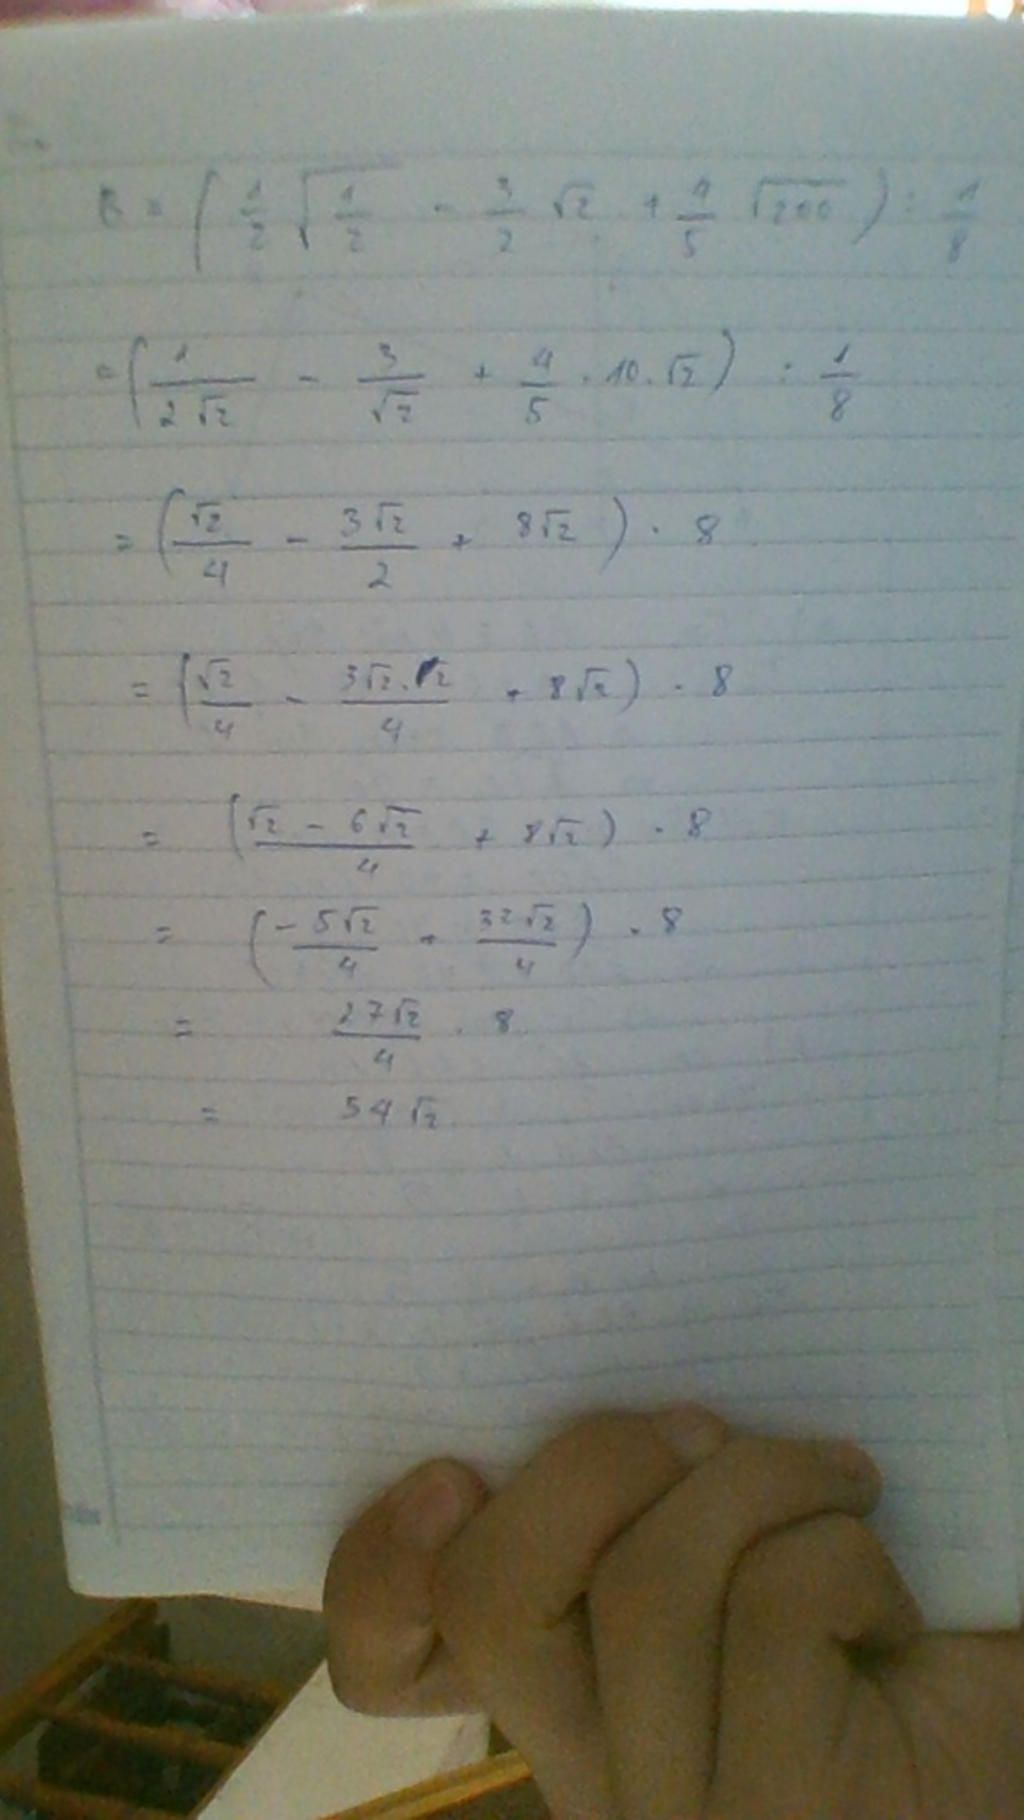 B = ( 1/2 √(1/2) - 3/2 √2 + 4/5 √200 ) : 1/8
= ( 1/(2√2) - 3/√2 + 4/5 . 10 . √2 ) : 1/8
= ( √2/4 - 3√2/2 + 8√2 ) . 8
= ( √2/4 - 3√2.2/4 + 8√2 ) . 8
= ( (√2 - 6√2)/4 + 8√2 ) . 8
= ( -5√2/4 + 32√2/4 ) . 8
= 27√2/4 . 8
= 54√2